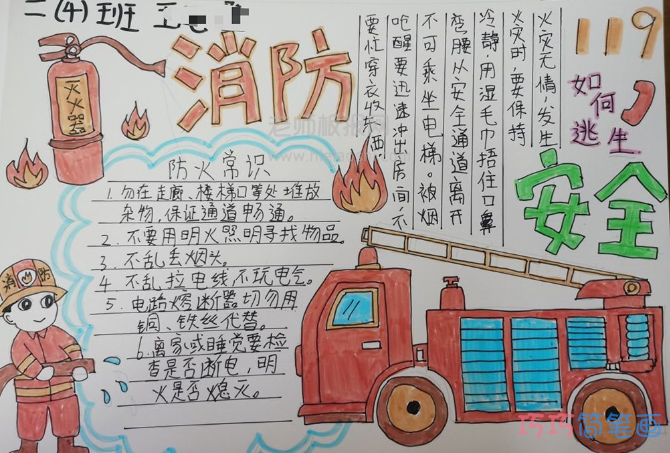 二(4)班 王
消防
119
灭火器
如何
逃生
安全
火灾无情,发生
火灾时,要保持
冷静,用湿毛巾捂住口鼻
弯腰从安全通道离开
不可乘坐电梯。被烟
呛醒要迅速冲出房间不
要忙穿衣收拾东西
防火常识
1.勿在走廊、楼梯口等处堆放
杂物,保证通道畅通。
2.不要用明火照明寻找物品。
3.不乱丢烟头。
4.不乱拉电线不玩电气。
5.电路熔断器切勿用
铜、铁丝代替。
6.离家或睡觉要检
查是否断电,明
火是否熄灭。
消防
老师板报网
巧巧简笔画